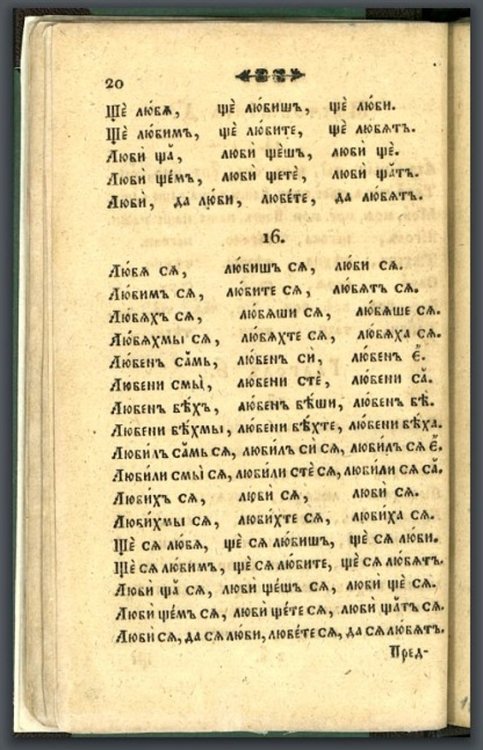 20
Щѐ лю́бѧ, щѐ лю́бишъ, щѐ лю́би.
Щѐ лю́бимъ, щѐ лю́бите, щѐ лю́бѧтъ.
Люби̏ щѫ̀, люби̏ щѐшъ, люби̏ щѐ.
Люби̏ щѐмъ, люби̏ щетѐ, люби̏ щѫ̀тъ.
Люби̏, да лю́би, любе́те, да лю́бѧтъ.
16.
Лю́бѧ сѧ, лю́бишъ сѧ, лю́би сѧ.
Лю́бимъ сѧ, лю́бите сѧ, лю́бѧтъ сѧ.
Лю́бѧхъ сѧ, лю́бѧши сѧ, лю́бѧше сѧ.
Лю́бѧхмы сѧ, лю́бѧхте сѧ, лю́бѧха сѧ.
Лю́бенъ сѫ́мь, лю́бенъ сѝ, лю́бенъ є҆́.
Лю́бени смы̀, лю́бени стѐ, лю́бени сѫ̀.
Лю́бенъ бѣ́хъ, лю́бенъ бѣ́ши, лю́бенъ бѣ̀.
Лю́бени бѣ́хмы, лю́бени бѣ́хте, лю́бени бѣ́ха.
Люби́лъ сѫ́мь сѧ, люби́лъ сѝ сѧ, люби́лъ сѧ є҆́.
Люби́ли смы̀ сѧ, люби́ли стѐ сѧ, люби́ли сѧ сѫ̀.
Люби́хъ сѧ, люби̏ сѧ, люби̏ сѧ.
Люби́хмы сѧ, люби́хте сѧ, люби́ха сѧ.
Щѐ сѧ лю́бѧ, щѐ сѧ лю́бишъ, щѐ сѧ лю́би.
Щѐ сѧ лю́бимъ, щѐ сѧ лю́бите, щѐ сѧ лю́бѧтъ.
Люби̏ щѫ̀ сѧ, люби̏ щѐшъ сѧ, люби̏ щѐ сѧ.
Люби̏ щѐмъ сѧ, люби̏ щѐте сѧ, люби̏ щѫ̀тъ сѧ.
Люби̏ сѧ, да сѧ лю́би, любе́те сѧ, да сѧ лю́бѧтъ.
Пред-